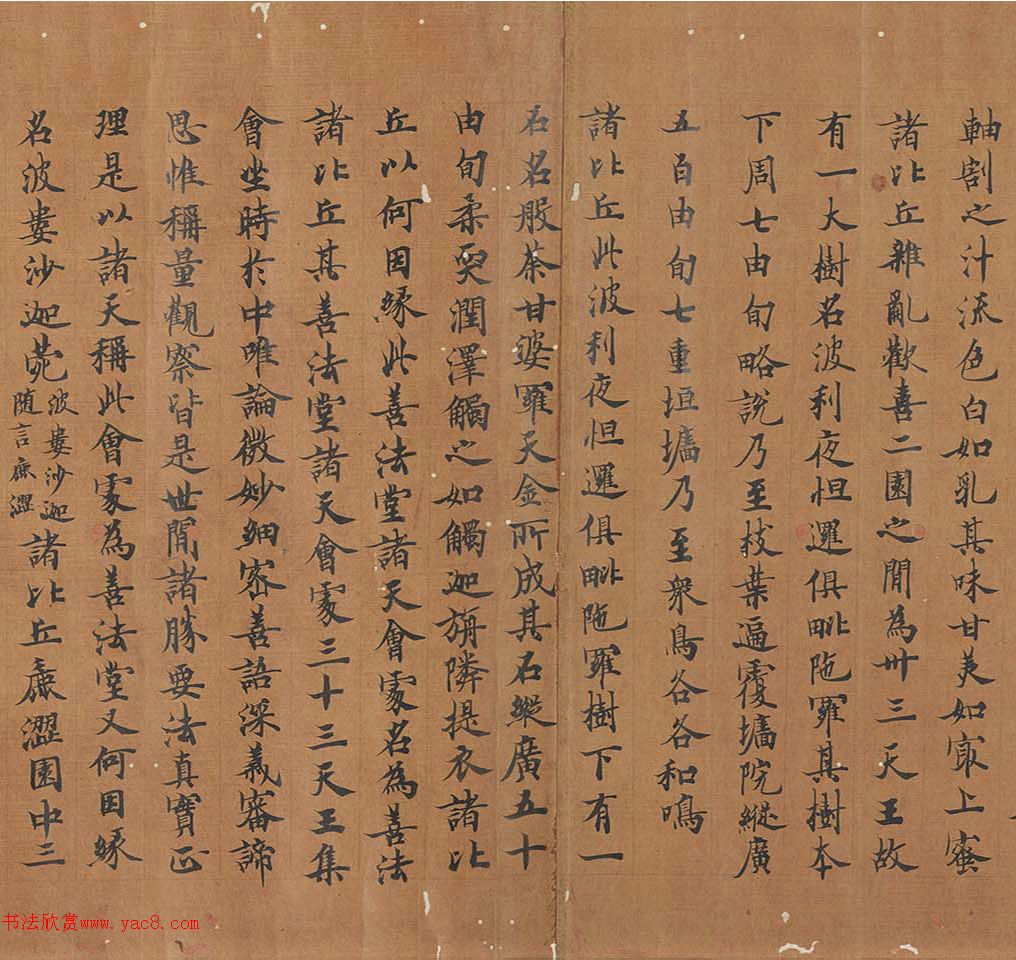 軸割之汁流色白如乳其味甘美如㝡上蜜
諸比丘雜亂歡喜二園之間為卅三天王故
有一大樹名波利夜怛邏俱毗陁羅其樹本
下周七由旬略說乃至枝葉遍覆墻院縱廣
五百由旬七重垣墻乃至衆鳥各各和鳴
諸比丘此波利夜怛邏俱毗陁羅樹下有一
石名般荼甘婆羅天金所成其石縱廣五十
由旬柔耎潤澤觸之如觸迦旃隣提衣諸比
丘以何因緣此善法堂諸天會處名為善法
諸比丘其善法堂諸天會處三十三天王集
會坐時於中唯論微妙細密善語深義審諦
思惟稱量觀察皆是世間諸勝要法真實正
理是以諸天稱此會處為善法堂又何因緣
名波婁沙迦苑波婁沙迦
随言麁澀諸比丘麁澀園中三
书法欣赏www.yac8.com